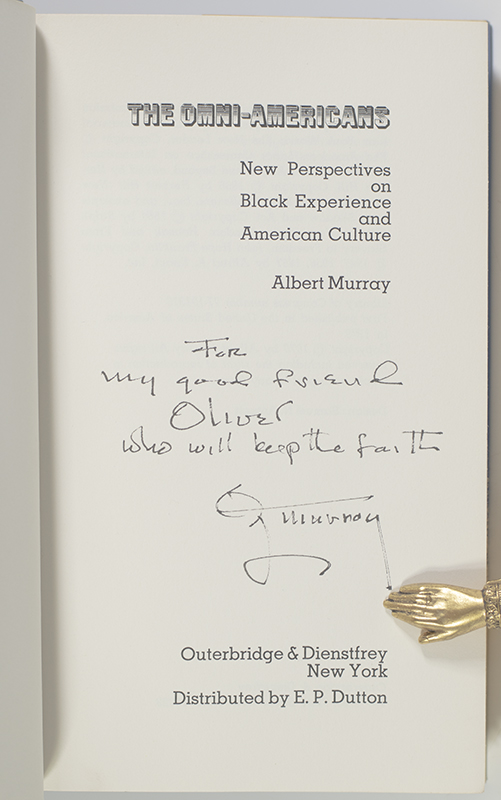 THE OMNI-AMERICANS
New Perspectives
on
Black Experience
and
American Culture
Albert Murray
For
my good friend
Oliver
who will keep the faith
Murray
Outerbridge & Dienstfrey
New York
Distributed by E. P. Dutton